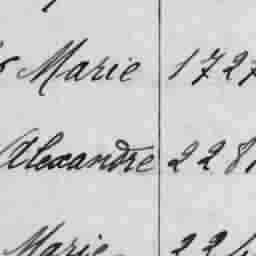 Marie 1727
Alexandre 228
Marie 22